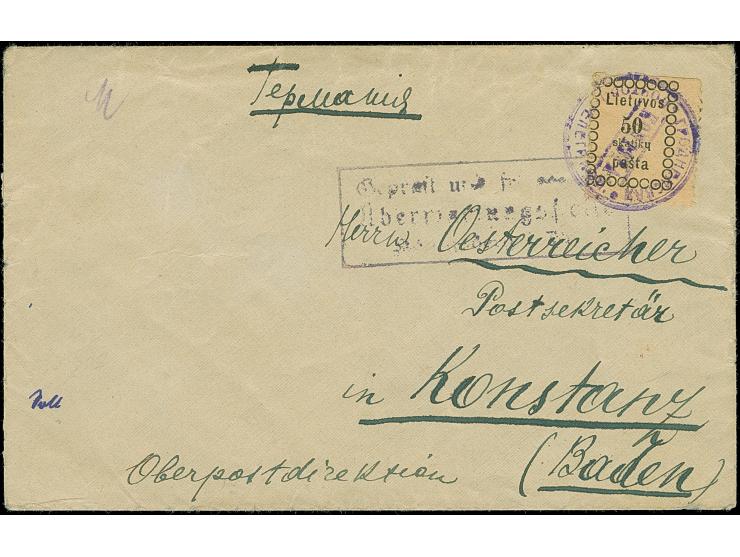 Германия
Lietuvos
50
skatikų
pašta
Geprüft und
Herrn Oesterreicher
Postsekretär
in Konstanz
(Baden)
Oberpostdirektion